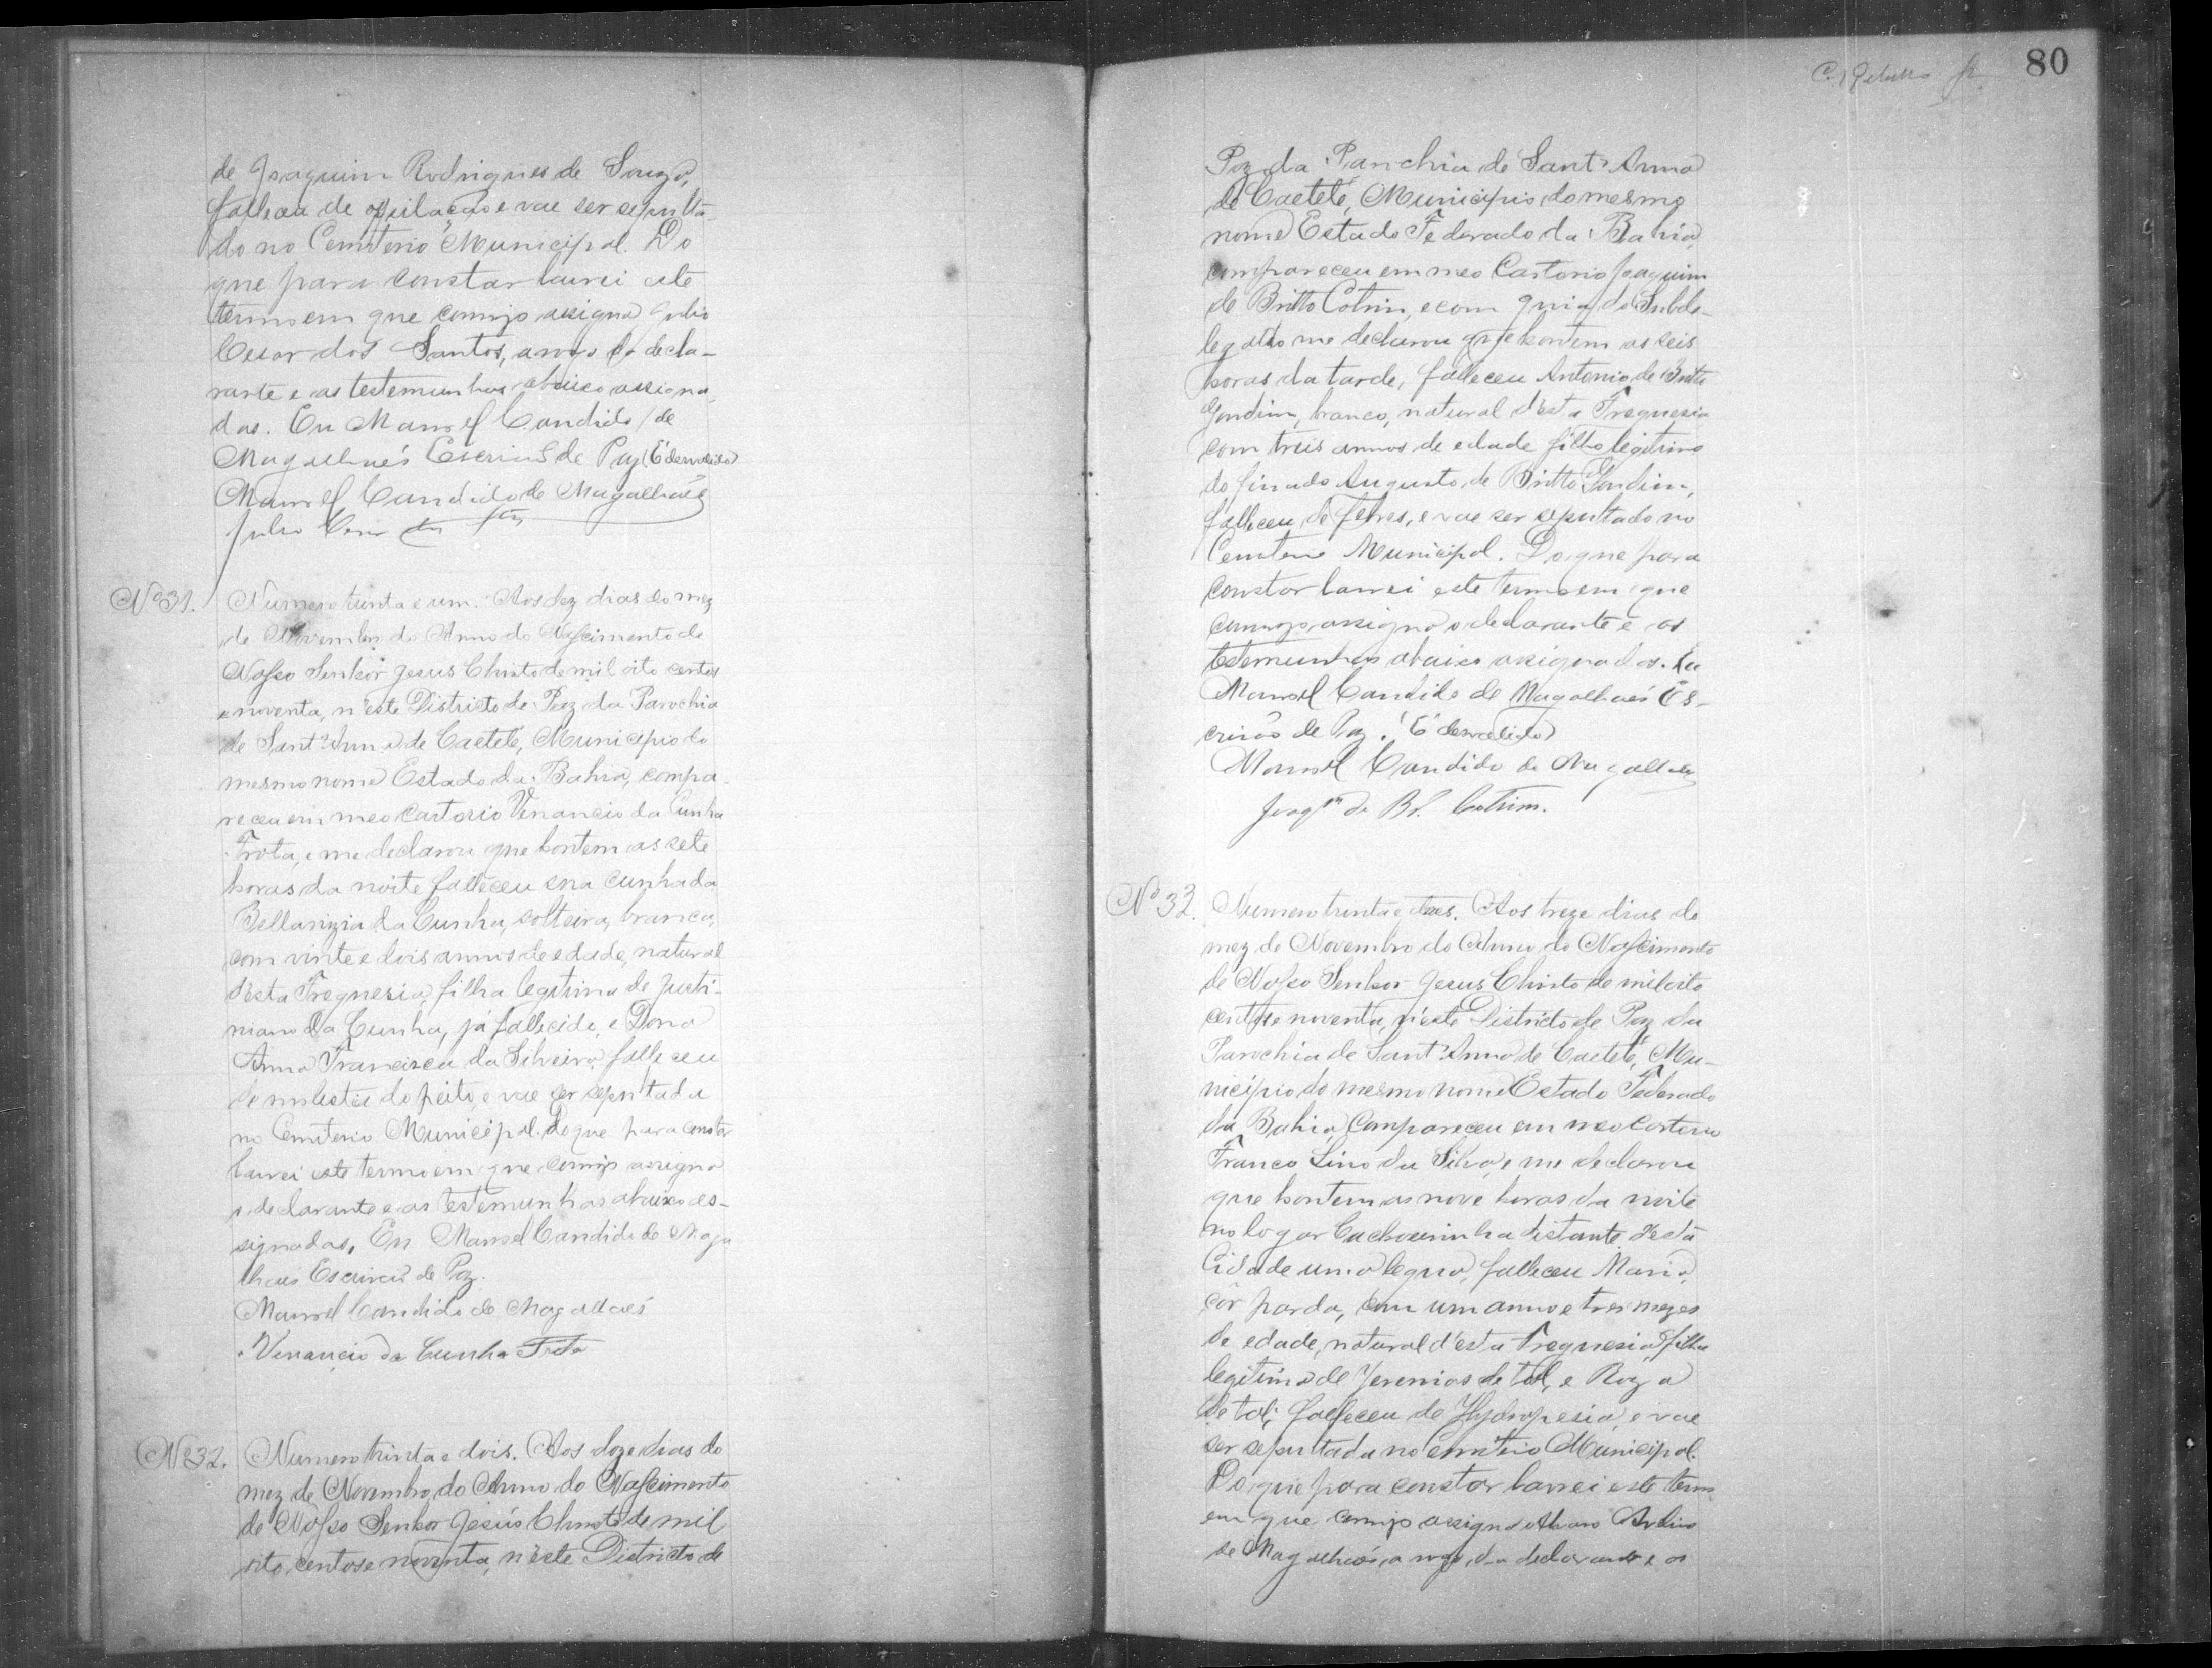 de Joaquim Rodrigues de Souza,
falleceu de opilação e vae ser sepulta-
do no Cemiterio Municipal. Do
que para constar lavrei este
termo em que comigo assigna Julio
Cesar dos Santos, a rogo do decla-
rante e as testemunhas abaixo assigna-
das. Eu Manoel Candido de
Magalhães Escrivão de Paz (É desvalido)
Manoel Candido de Magalhães
Julio Cesar dos Stos
Nº 31. Numero trinta e um. Aos dez dias do mez
de Novembro do Anno do Nascimento de
Nosso Senhor Jesus Christo de mil oito centos
e noventa, n'este Districto de Paz da Parochia
de Sant'Anna de Caeteté, Municipio do
mesmo nome Estado da Bahia, compa-
receu em meo Cartorio Venancio da Cunha
Frota, e me declarou que hontem as sete
horas da noite falleceu sua cunhada
Bellanizia da Cunha, solteira, branca,
com vinte e dois annos de edade, natural
d'esta Freguesia, filha legitima de Justi-
niano da Cunha, já fallecido, e Dona
Anna Francisca da Silveira, falleceu
de molestia do peito, e vae ser sepultada
no Cemiterio Municipal. do que para constar
lavrei este termo em que comigo assigna
o declarante e as testemunhas abaixo as-
signadas, Eu Manoel Candido de Maga
lhães Escrivão de Paz.
Manoel Candido de Magalhães
Venancio da Cunha Frota
Nº 32. Numero trinta e dois. Aos doze dias do
mez de Novembro do Anno do Nascimento
de Nosso Senhor Jesús Christo de mil
oito centos e noventa, n'este Districto de
80
Paz da Parochia de Sant'Anna
de Caeteté, Municipio do mesmo
nome Estado Federado da Bahia,
compareceu em meo Cartorio Joaquim
de Britto Cotrim, e com guia do Subde-
legado me declarou que hontem as seis
horas da tarde, falleceu Antonio de Britto
Gondim, branco, natural d'esta Freguesia
com treis annos de edade filho legitimo
do finado Augusto de Britto Gondim,
falleceu de febres, e vae ser sepultado no
Cemiterio Municipal. Do que para
constar lavrei este termo em que
comigo assigna o declarante e as
testemunhas abaixo assignados. Eu
Manoel Candido de Magalhães Es-
crivão de Paz. (É desvalido)
Manoel Candido de Magalhães
Joaqm de Br. Cotrim.
Nº 33. Numero trinta e tres. Aos treze dias do
mez de Novembro do Anno do Nascimento
de Nosso Senhor Jesus Christo de mil oito
centos e noventa, n'este Districto de Paz da
Parochia de Sant'Anna de Caeteté, Mu-
nicipio do mesmo nome Estado Federado
da Bahia, Compareceu em meo Cartorio
Franco Lino da Silva, e me declarou
que hontem as nove horas da noite
no logar Cachoeirinha distante d'esta
Cidade uma legua, falleceu Maria,
côr parda, com um anno e tres mezes
de edade, natural d'esta Freguesia, filha
legitima de Jeremias de tal, e Roza
de tal; falleceu de Hydropesia, e vae
ser sepultada no Cemiterio Municipal.
Do que para constar lavrei este termo
em que comigo assigna Alvaro
de Magalhães, a rogo da declarante e as